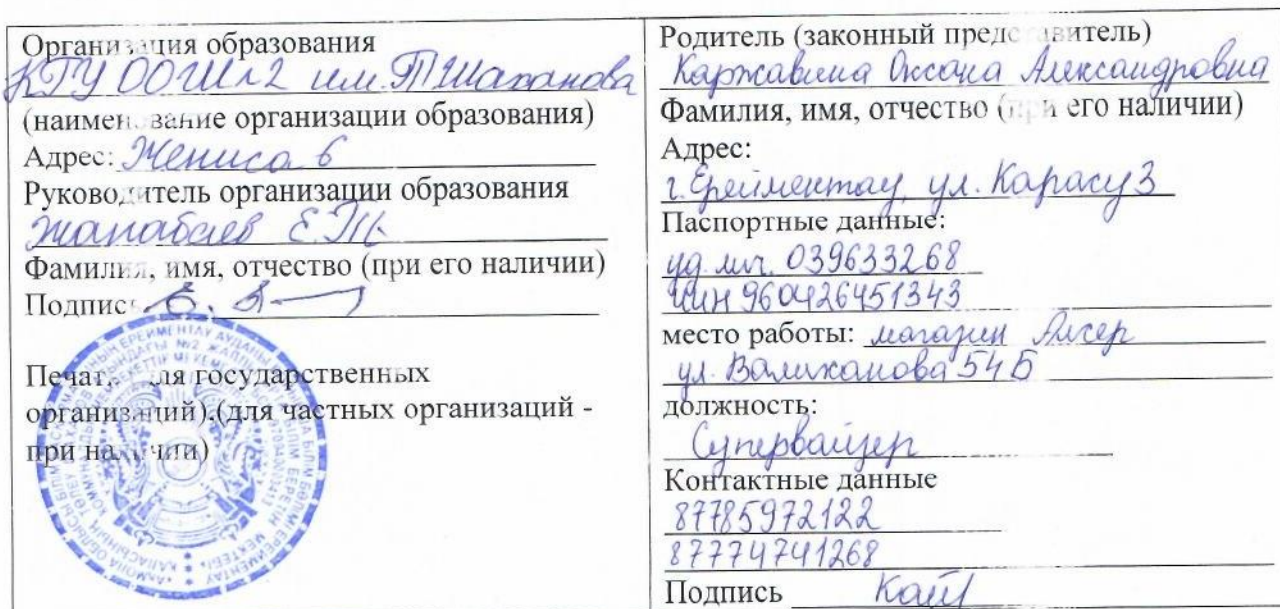 Организация образования
КГУ ООШ №2 им. Т. Шаханова
(наименование организации образования)
Адрес: Жениса 6
Руководитель организации образования
Жапабаев Е.Т.
Фамилия, имя, отчество (при его наличии)
Подпись
Печать для государственных
организаций),(для частных организаций -
при наличии)
Родитель (законный представитель)
Каржавина Оксана Александровна
Фамилия, имя, отчество (при его наличии)
Адрес:
г. Ерейментау, ул. Карасу 3
Паспортные данные:
уд. лич. 039633268
иин 960426451343
место работы: магазин
ул. Валиханова 54 Б
должность:
Супервайзер
Контактные данные
87785972122
87774741268
Подпись